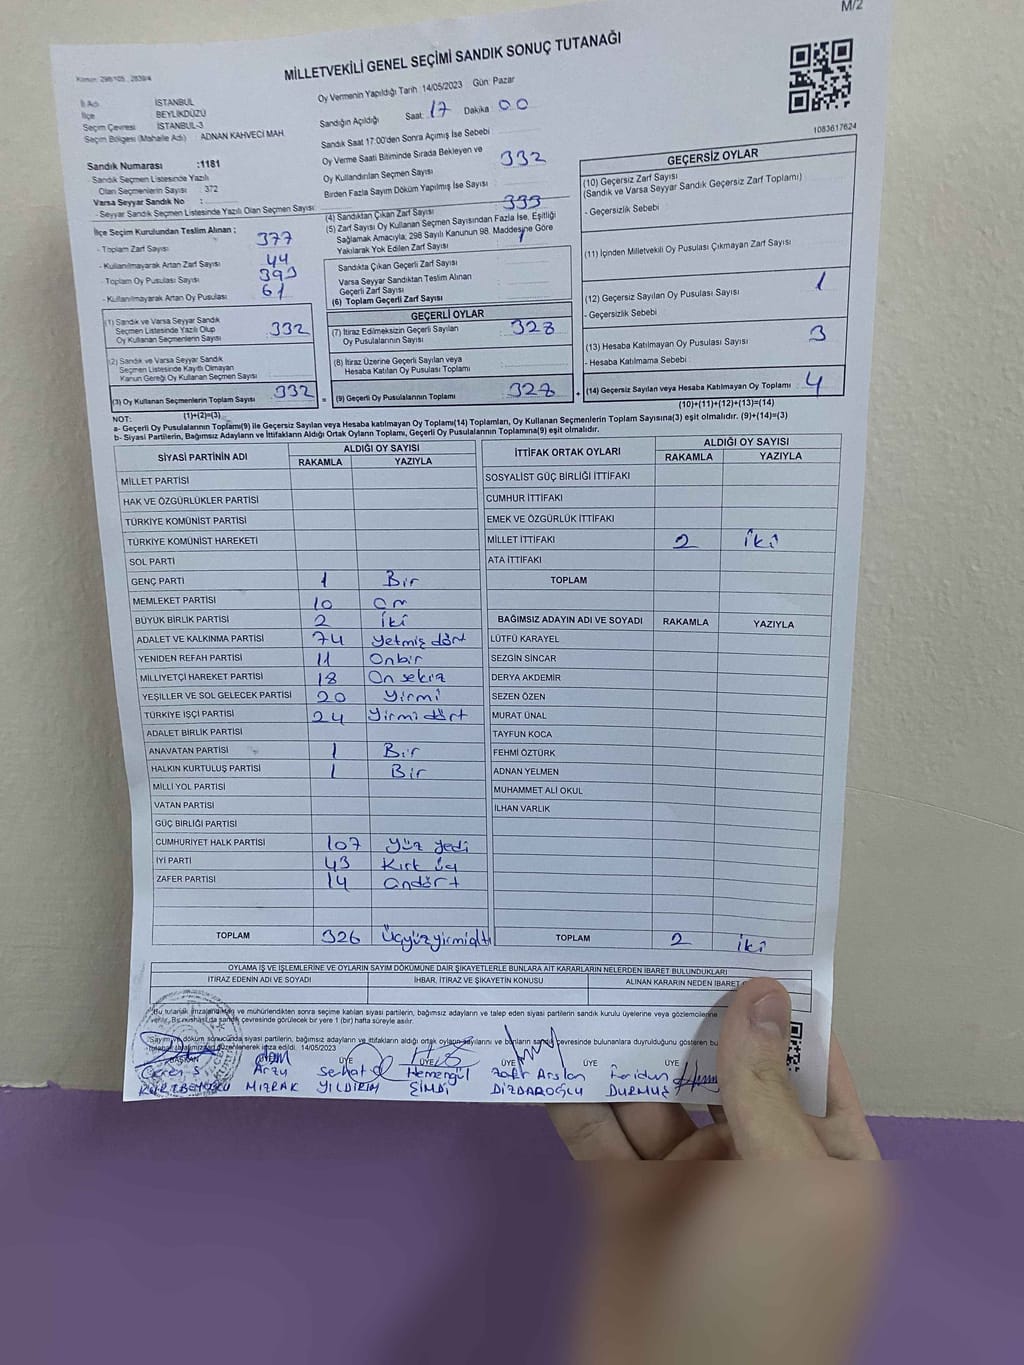 M/2
MİLLETVEKİLİ GENEL SEÇİMİ SANDIK SONUÇ TUTANAĞI
İl Adı İSTANBUL
İlçe BEYLİKDÜZÜ
Seçim Çevresi İSTANBUL-3
Seçim Bölgesi (Mahalle Adı) ADNAN KAHVECİ MAH
Oy Vermenin Yapıldığı Tarih 14/05/2023 Gün: Pazar
Sandığın Açıldığı Saat: 17 Dakika 00
Sandık Saat 17:00'den Sonra Açımış İse Sebebi
Oy Verme Saati Bitiminde Sırada Bekleyen ve
Oy Kullandırılan Seçmen Sayısı 332
Birden Fazla Sayım Döküm Yapılmış İse Sayısı
1083617624
Sandık Numarası :1181
Sandık Seçmen Listesinde Yazılı
Olan Seçmenlerin Sayısı : 372
Varsa Seyyar Sandık No :
- Seyyar Sandık Seçmen Listesinde Yazılı Olan Seçmen Sayısı
İlçe Seçim Kurulundan Teslim Alınan ;
- Toplam Zarf Sayısı 377
- Kullanılmayarak Artan Zarf Sayısı 44
- Toplam Oy Pusulası Sayısı 393
- Kullanılmayarak Artan Oy Pusulası 61
(1) Sandık ve Varsa Seyyar Sandık
Seçmen Listesinde Yazılı Olup
Oy Kullanan Seçmenlerin Sayısı 332
(2) Sandık ve Varsa Seyyar Sandık
Seçmen Listesinde Kayıtlı Olmayan
Kanun Gereği Oy Kullanan Seçmen Sayısı
(3) Oy Kullanan Seçmenlerin Toplam Sayısı 332
(4) Sandıktan Çıkan Zarf Sayısı 333
(5) Zarf Sayısı Oy Kullanan Seçmen Sayısından Fazla İse, Eşitliği
Sağlamak Amacıyla, 298 Sayılı Kanunun 98. Maddesine Göre
Yakılarak Yok Edilen Zarf Sayısı 1
Sandıkta Çıkan Geçerli Zarf Sayısı
Varsa Seyyar Sandıktan Teslim Alınan
Geçerli Zarf Sayısı
(6) Toplam Geçerli Zarf Sayısı
GEÇERLİ OYLAR
(7) İtiraz Edilmeksizin Geçerli Sayılan
Oy Pusulalarının Sayısı 328
(8) İtiraz Üzerine Geçerli Sayılan veya
Hesaba Katılan Oy Pusulası Toplamı
= (9) Geçerli Oy Pusulalarının Toplamı 328
GEÇERSİZ OYLAR
(10) Geçersiz Zarf Sayısı
(Sandık ve Varsa Seyyar Sandık Geçersiz Zarf Toplamı)
- Geçersizlik Sebebi
(11) İçinden Milletvekili Oy Pusulası Çıkmayan Zarf Sayısı
(12) Geçersiz Sayılan Oy Pusulası Sayısı 1
- Geçersizlik Sebebi
(13) Hesaba Katılmayan Oy Pusulası Sayısı 3
- Hesaba Katılmama Sebebi
+ (14) Geçersiz Sayılan veya Hesaba Katılmayan Oy Toplamı 4
(1)+(2)=(3)
(10)+(11)+(12)+(13)=(14)
NOT:
a- Geçerli Oy Pusulalarının Toplamı(9) ile Geçersiz Sayılan veya Hesaba Katılmayan Oy Toplamı(14) Toplamları, Oy Kullanan Seçmenlerin Toplam Sayısına(3) eşit olmalıdır. (9)+(14)=(3)
b- Siyasi Partilerin, Bağımsız Adayların ve İttifakların Aldığı Ortak Oyların Toplamı, Geçerli Oy Pusulalarının Toplamına(9) eşit olmalıdır.
SİYASİ PARTİNİN ADI ALDIĞI OY SAYISI
RAKAMLA YAZIYLA
MİLLET PARTİSİ
HAK VE ÖZGÜRLÜKLER PARTİSİ
TÜRKİYE KOMÜNİST PARTİSİ
TÜRKİYE KOMÜNİST HAREKETİ
SOL PARTİ
GENÇ PARTİ 1 Bir
MEMLEKET PARTİSİ 10 on
BÜYÜK BİRLİK PARTİSİ 2 iki
ADALET VE KALKINMA PARTİSİ 74 yetmiş dört
YENİDEN REFAH PARTİSİ 11 Onbir
MİLLİYETÇİ HAREKET PARTİSİ 18 On sekiz
YEŞİLLER VE SOL GELECEK PARTİSİ 20 yirmi
TÜRKİYE İŞÇİ PARTİSİ 24 yirmi dört
ADALET BİRLİK PARTİSİ
ANAVATAN PARTİSİ 1 Bir
HALKIN KURTULUŞ PARTİSİ 1 Bir
MİLLİ YOL PARTİSİ
VATAN PARTİSİ
GÜÇ BİRLİĞİ PARTİSİ
CUMHURİYET HALK PARTİSİ 107 yüz yedi
İYİ PARTİ 43 Kırk üç
ZAFER PARTİSİ 14 ondört
TOPLAM 326 Üçyüzyirmialtı
İTTİFAK ORTAK OYLARI ALDIĞI OY SAYISI
RAKAMLA YAZIYLA
SOSYALİST GÜÇ BİRLİĞİ İTTİFAKI
CUMHUR İTTİFAKI
EMEK VE ÖZGÜRLÜK İTTİFAKI
MİLLET İTTİFAKI 2 iki
ATA İTTİFAKI
TOPLAM
BAĞIMSIZ ADAYIN ADI VE SOYADI RAKAMLA YAZIYLA
LÜTFÜ KARAYEL
SEZGİN SİNCAR
DERYA AKDEMİR
SEZEN ÖZEN
MURAT ÜNAL
TAYFUN KOCA
FEHMİ ÖZTÜRK
ADNAN YELMEN
MUHAMMET ALİ OKUL
İLHAN VARLIK
TOPLAM 2 iki
OYLAMA İŞ VE İŞLEMLERİNE VE OYLARIN SAYIM DÖKÜMÜNE DAİR ŞİKAYETLERLE BUNLARA AİT KARARLARIN NELERDEN İBARET BULUNDUKLARI
İTİRAZ EDENİN ADI VE SOYADI İHBAR, İTİRAZ VE ŞİKAYETİN KONUSU ALINAN KARARIN NEDEN İBARET
Bu tutanak imzalandıktan ve mühürlendikten sonra seçime katılan siyasi partilerin, bağımsız adayların ve talep eden siyasi partilerin sandık kurulu üyelerine veya gözlemcilerine
verilir, Bir nüshası da sandık çevresinde görülecek bir yere 1 (bir) hafta süreyle asılır.
Sayım ve döküm sonucunda siyasi partilerin, bağımsız adayların ve ittifakların aldığı ortak oyların sayılarını ve bunların sandık çevresinde bulunanlara duyrulduğunu gösteren bu
düzenlenerek imza edildi. 14/05/2023
BAŞKAN ÜYE ÜYE ÜYE ÜYE
Arzu Serhat Hemengül Zafer Arslan Feridun
MIZRAK YILDIRIM ŞİMDİ DİZDAROĞLU DURMUŞ